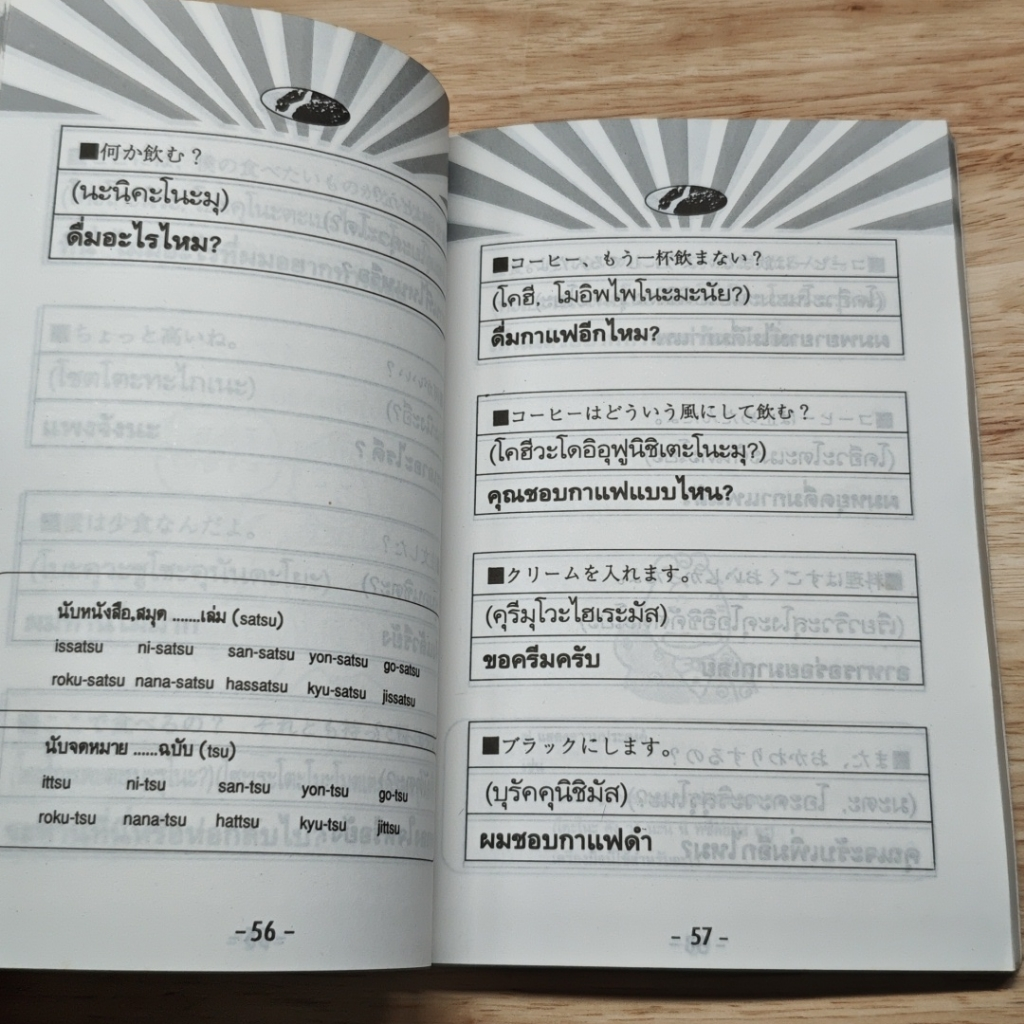 ■何か飲む？
(นะนิคะโนะมุ)
ดื่มอะไรไหม?
นับหนังสือ,สมุด .......เล่ม (satsu)
issatsu ni-satsu san-satsu yon-satsu go-satsu
roku-satsu nana-satsu hassatsu kyu-satsu jissatsu
นับจดหมาย ......ฉบับ (tsu)
ittsu ni-tsu san-tsu yon-tsu go-tsu
roku-tsu nana-tsu hattsu kyu-tsu jittsu
- 56 -
■コーヒー、もう一杯飲まない？
(โคฮี, โมอิพไพโนะมะนัย?)
ดื่มกาแฟอีกไหม?
■コーヒーはどういう風にして飲む？
(โคฮีวะโดอิอุฟูนิชิเตะโนะมุ?)
คุณชอบกาแฟแบบไหน?
■クリームを入れます。
(คุรีมุโวะไฮเระมัส)
ขอครีมครับ
■ブラックにします。
(บุรัคคุนิชิมัส)
ผมชอบกาแฟดำ
- 57 -